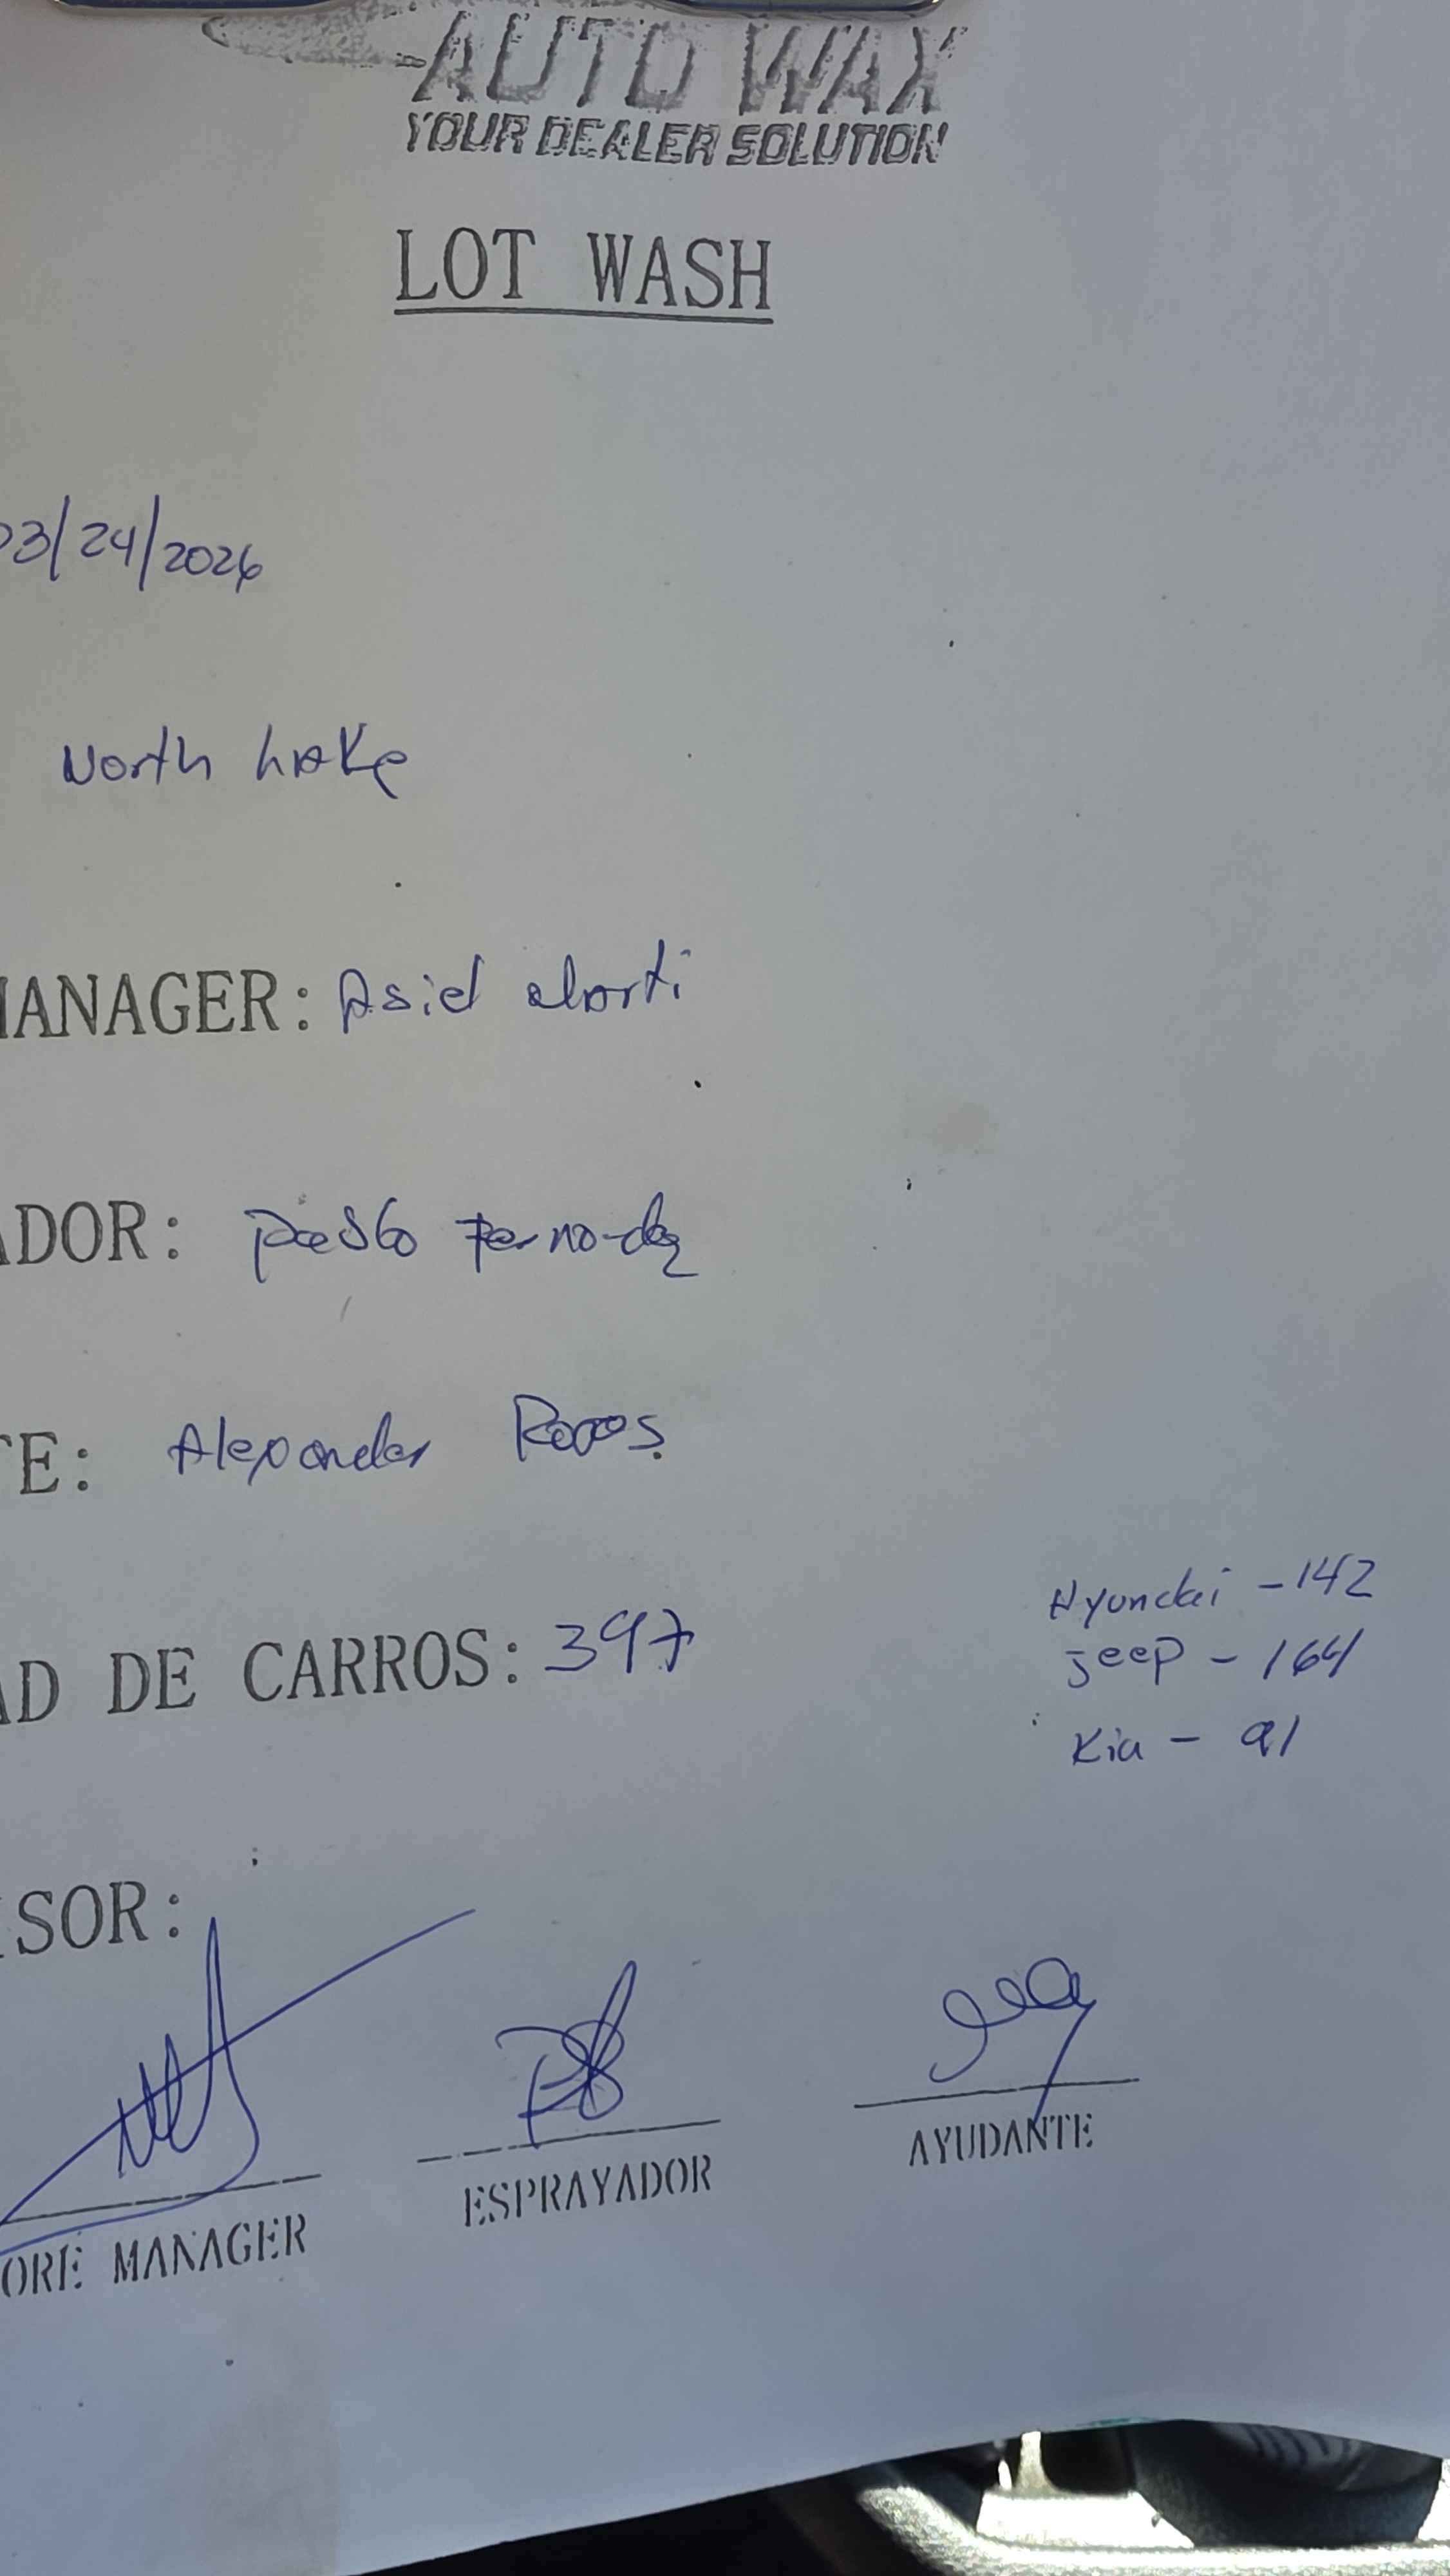 AUTO WAX
YOUR DEALER SOLUTION
LOT WASH
03/24/2026
North Lake
MANAGER: Asiel
ADOR: Pablo Fernandez
TE: Alexander
AD DE CARROS: 397
Hyundai - 142
Jeep - 164
Kia - 91
ISOR:
ORE MANAGER
ESPRAYADOR
AYUDANTE